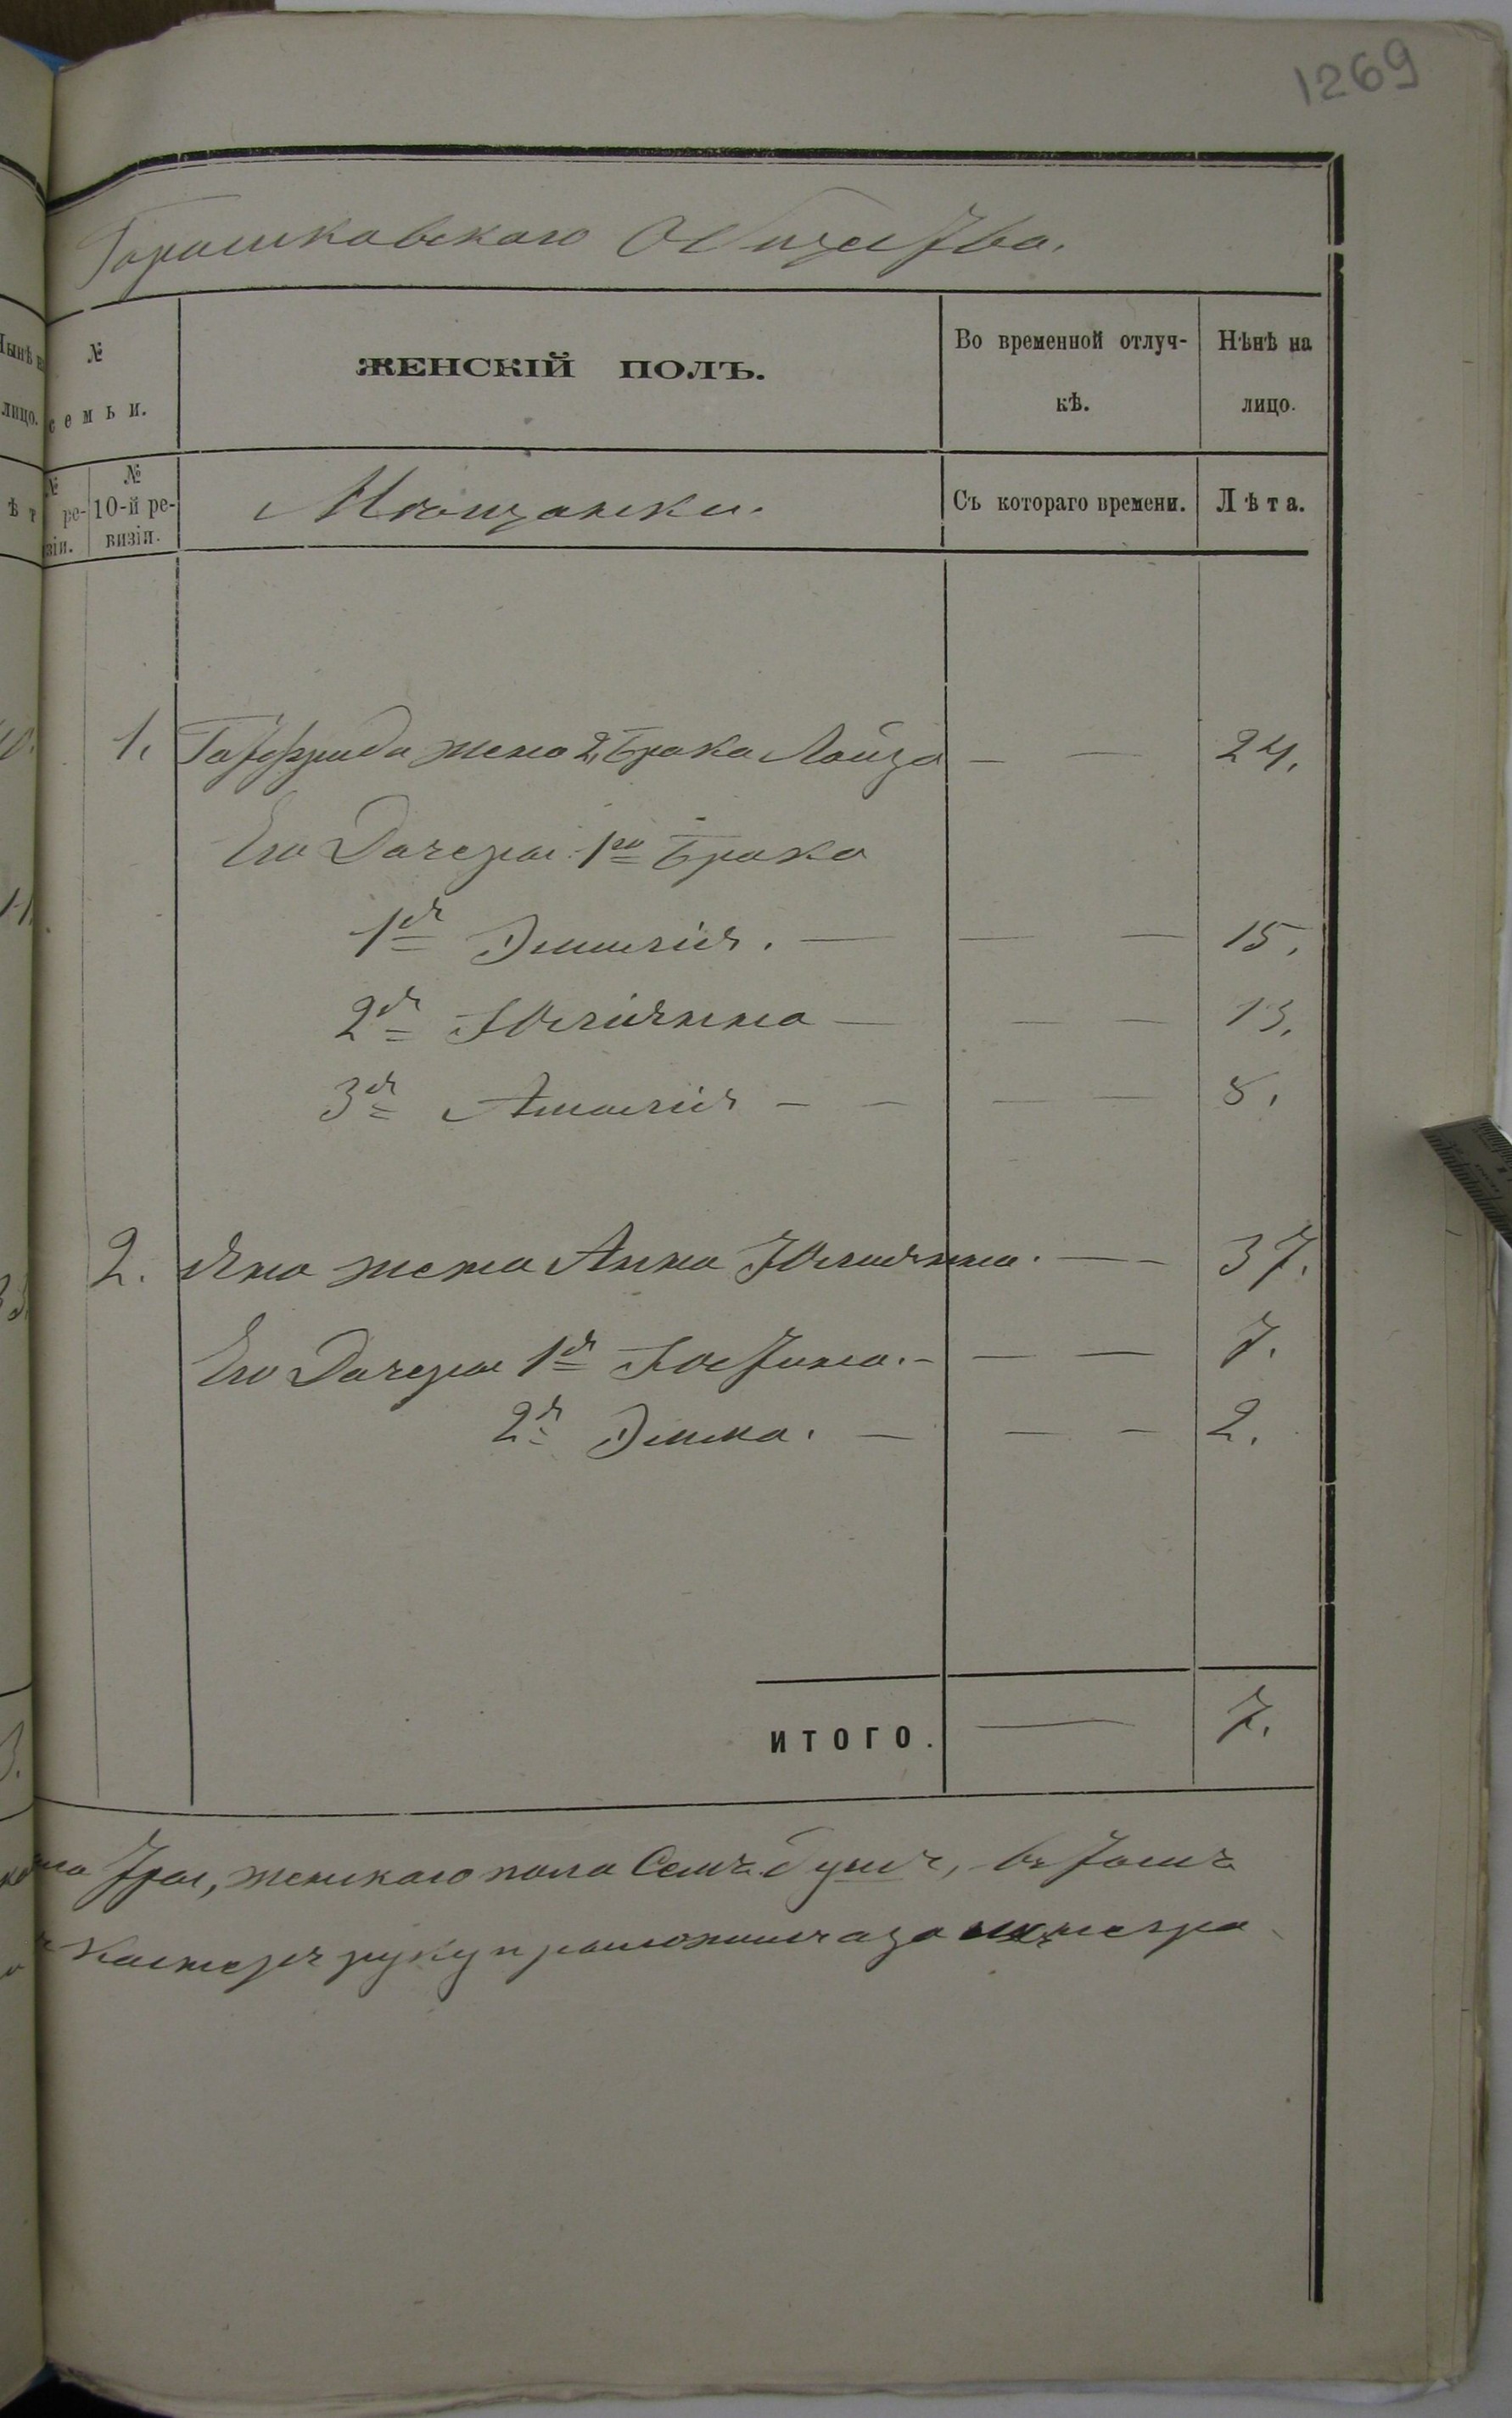 1269
Горошковскаго Общества.
Нынѣ на
лицо.
ѣ т
№
семьи.
ЖЕНСКІЙ ПОЛЪ.
Во временной отлуч-
кѣ.
Нѣнѣ на
лицо.
№
ре-
зіи.
№
10-й ре-
визіи.
Мѣщанки.
Съ котораго времени.
Лѣта.
1. Готфрида жена 2 брака Лоиза — — 24.
Его Дочеры 1го Брака
1я Эмилія. — — — 15.
2я Юліянна — — — 13.
3я Амалія — — — — 8.
2. Яна жена Анна Юлиянна. — — 37.
Его Дочеры 1я Юстина. — — — 7.
2я Эмма. — — — 2.
ИТОГО. — 7.
три, женскаго пола Семь душъ, въ томъ
руку приложилъ а за